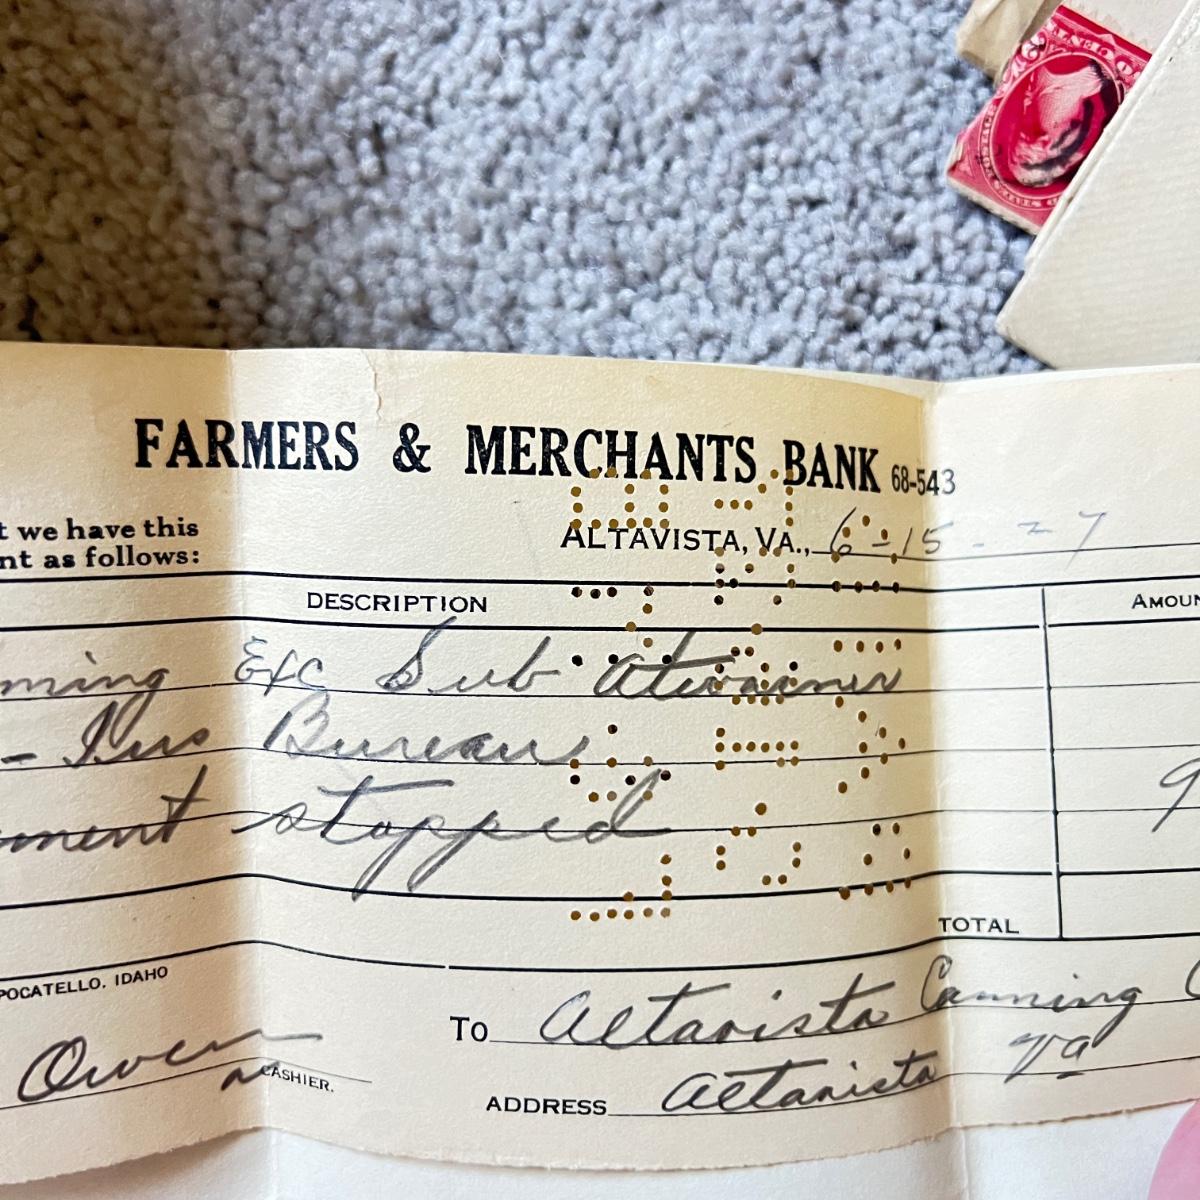 FARMERS & MERCHANTS BANK 68-543
t we have this
nt as follows:
ALTAVISTA, VA., 6-15-27
DESCRIPTION
AMOUN
ming Exc Sub
Bureau
ment stopped
9
TOTAL
POCATELLO, IDAHO
To Altavista Canning C
Owen
CASHIER.
ADDRESS Altavista Va